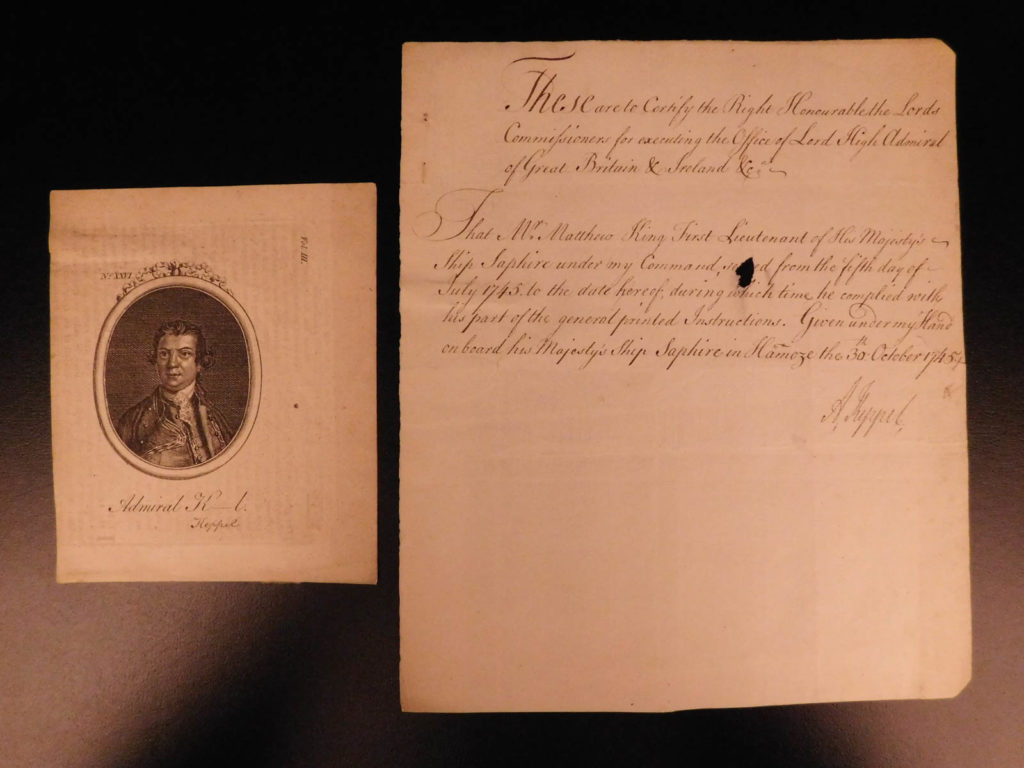 Vol. III.
Admiral K—l.
Keppel
These are to Certify the Right Honourable the Lords
Commissioners for executing the Office of Lord High Admiral
of Great Britain & Ireland &c.a
That Mr. Matthew King First Lieutenant of His Majesty's
Ship Saphire under my Command, from the fifth day of
July 1745. to the date hereof, during which time he complied with
his part of the general printed Instructions. Given under my Hand
on board his Majesty's Ship Saphire in Hamoze the 30th October 1745.
A. Keppel.